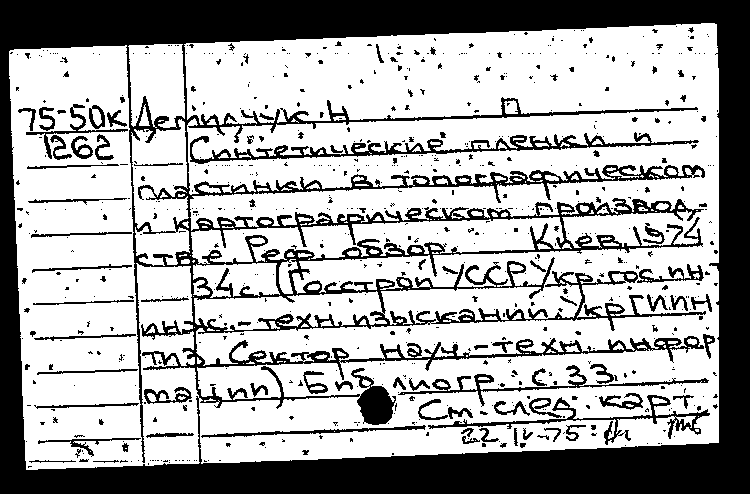 75-50к Демидчук, Н П
1262 Синтетические пленки и
пластинки в топографическом
и картографическом производ-
стве. Реф. обзор. Киев, 1974
34 с. (Госстрой УССР. Укр. гос. ин-т
инж.-техн. изысканий. УкрГИИН
ТИЗ. Сектор науч.-техн. инфор
мации) Библиогр.: с. 33.
См. след. карт.
22 IV-75